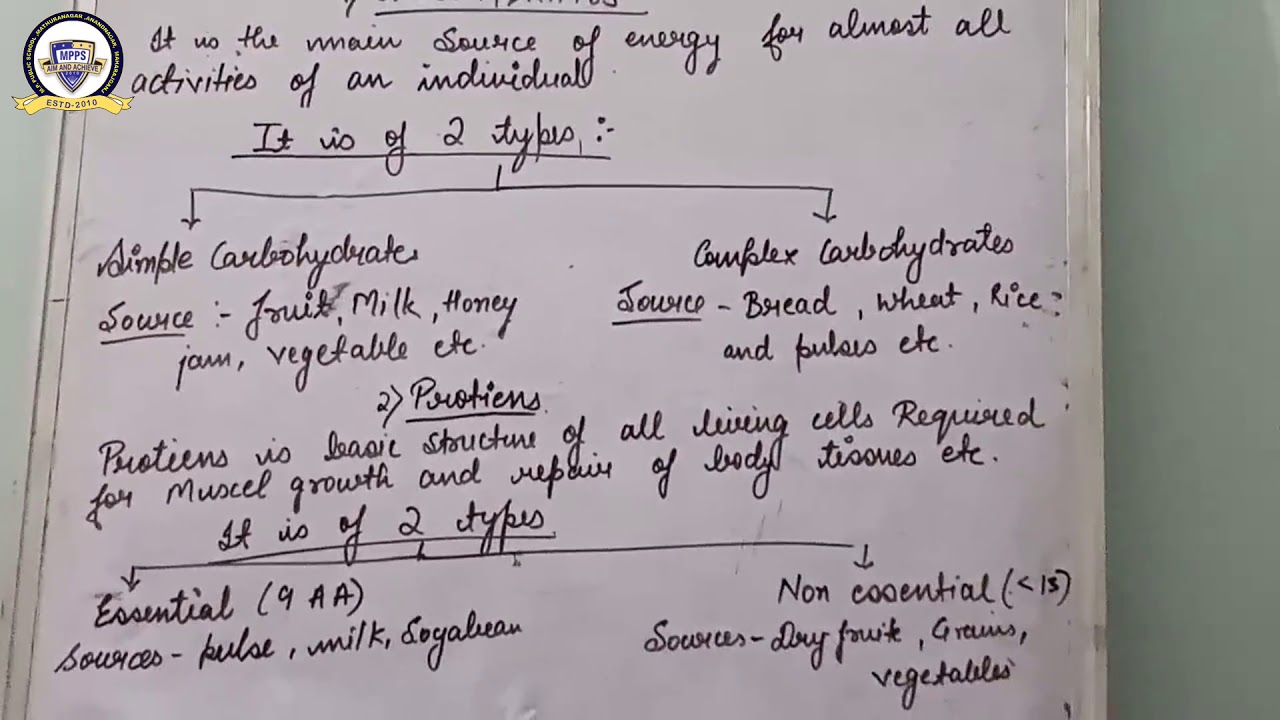 It is the main source of energy for almost all
activities of an individual
It is of 2 types :-
Simple Carbohydrates
Complex Carbohydrates
Source :- fruit, Milk, Honey
jam, vegetable etc.
Source - Bread, wheat, Rice
and pulses etc.
2) Protiens
Protiens is basic structure of all living cells Required
for Muscel growth and repair of body tissues etc.
It is of 2 types
Essential (9 AA)
Non essential (< 15)
Sources - pulse, milk, Soyabean
Sources - Dry fruit, Grains,
vegetables
MPPS
AIM AND ACHIEVE
ESTD-2010